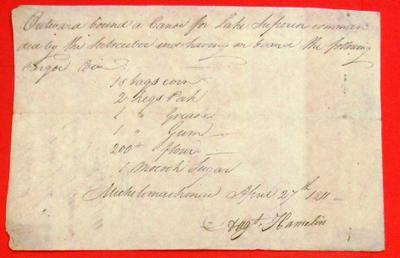 Outward bound a Canoe for Lake Superior comman
ded by the Subscriber and having on board the following
Cargo Viz
18 bags corn
2 Kegs Pork
1 " Grease
1 " Gum
200# flour
1 Mocock Sugar
Michilimackinac April 27th 1811
Augt. Hamelin